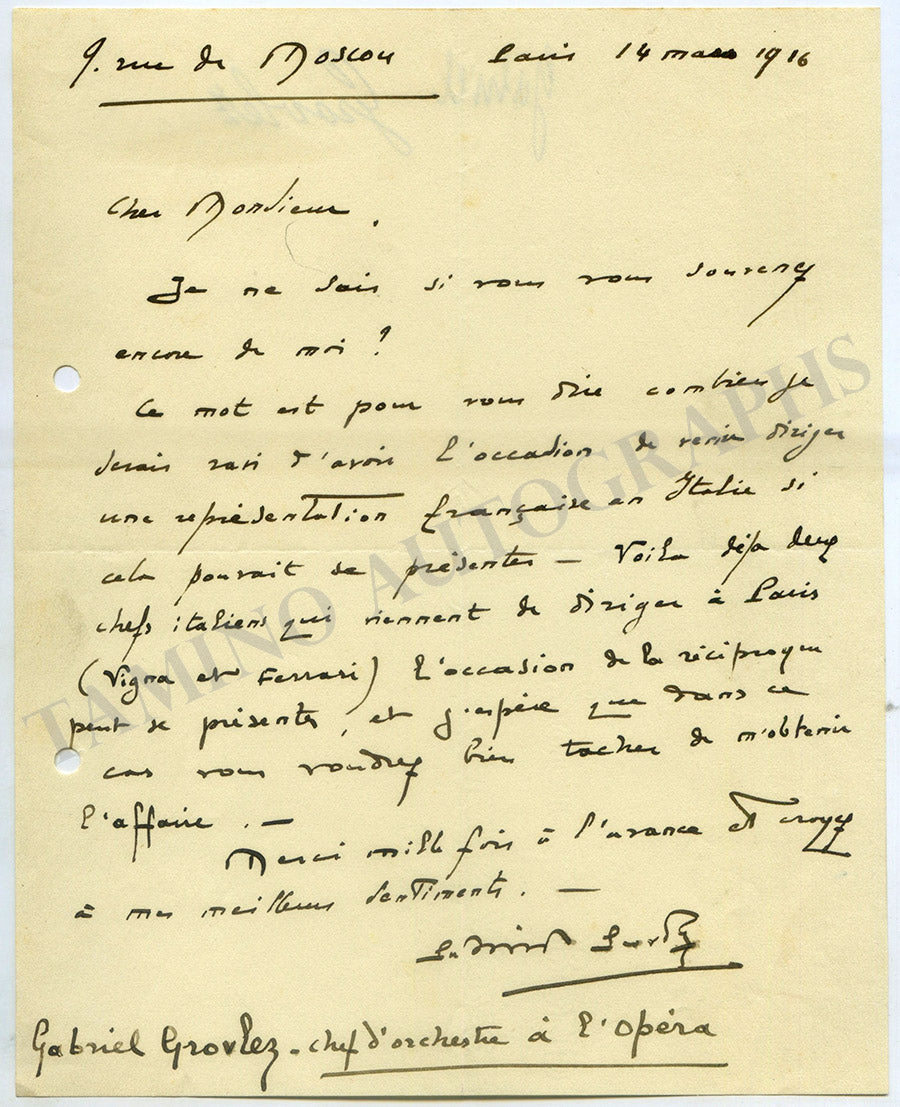 9. rue de Moscou Paris 14 mars 1916
Cher Monsieur,
Je ne sais si vous vous souvenez
encore de moi ?
Ce mot est pour vous dire combien je
serais ravi d'avoir l'occasion de venir diriger
une représentation française en Italie si
cela pouvait se présenter — Voila déja deux
chefs italiens qui viennent de diriger à Paris
(Vigna et Ferrari) l'occasion de la réciproque
peut se présenter, et j'espère que dans ce
cas vous voudrez bien tacher de m'obtenir
l'affaire. —
Merci mille fois à l'avance et croyez
à mes meilleurs sentiments. —
Gabriel Grovlez - chef d'orchestre à l'opéra
TAMINO AUTOGRAPHS